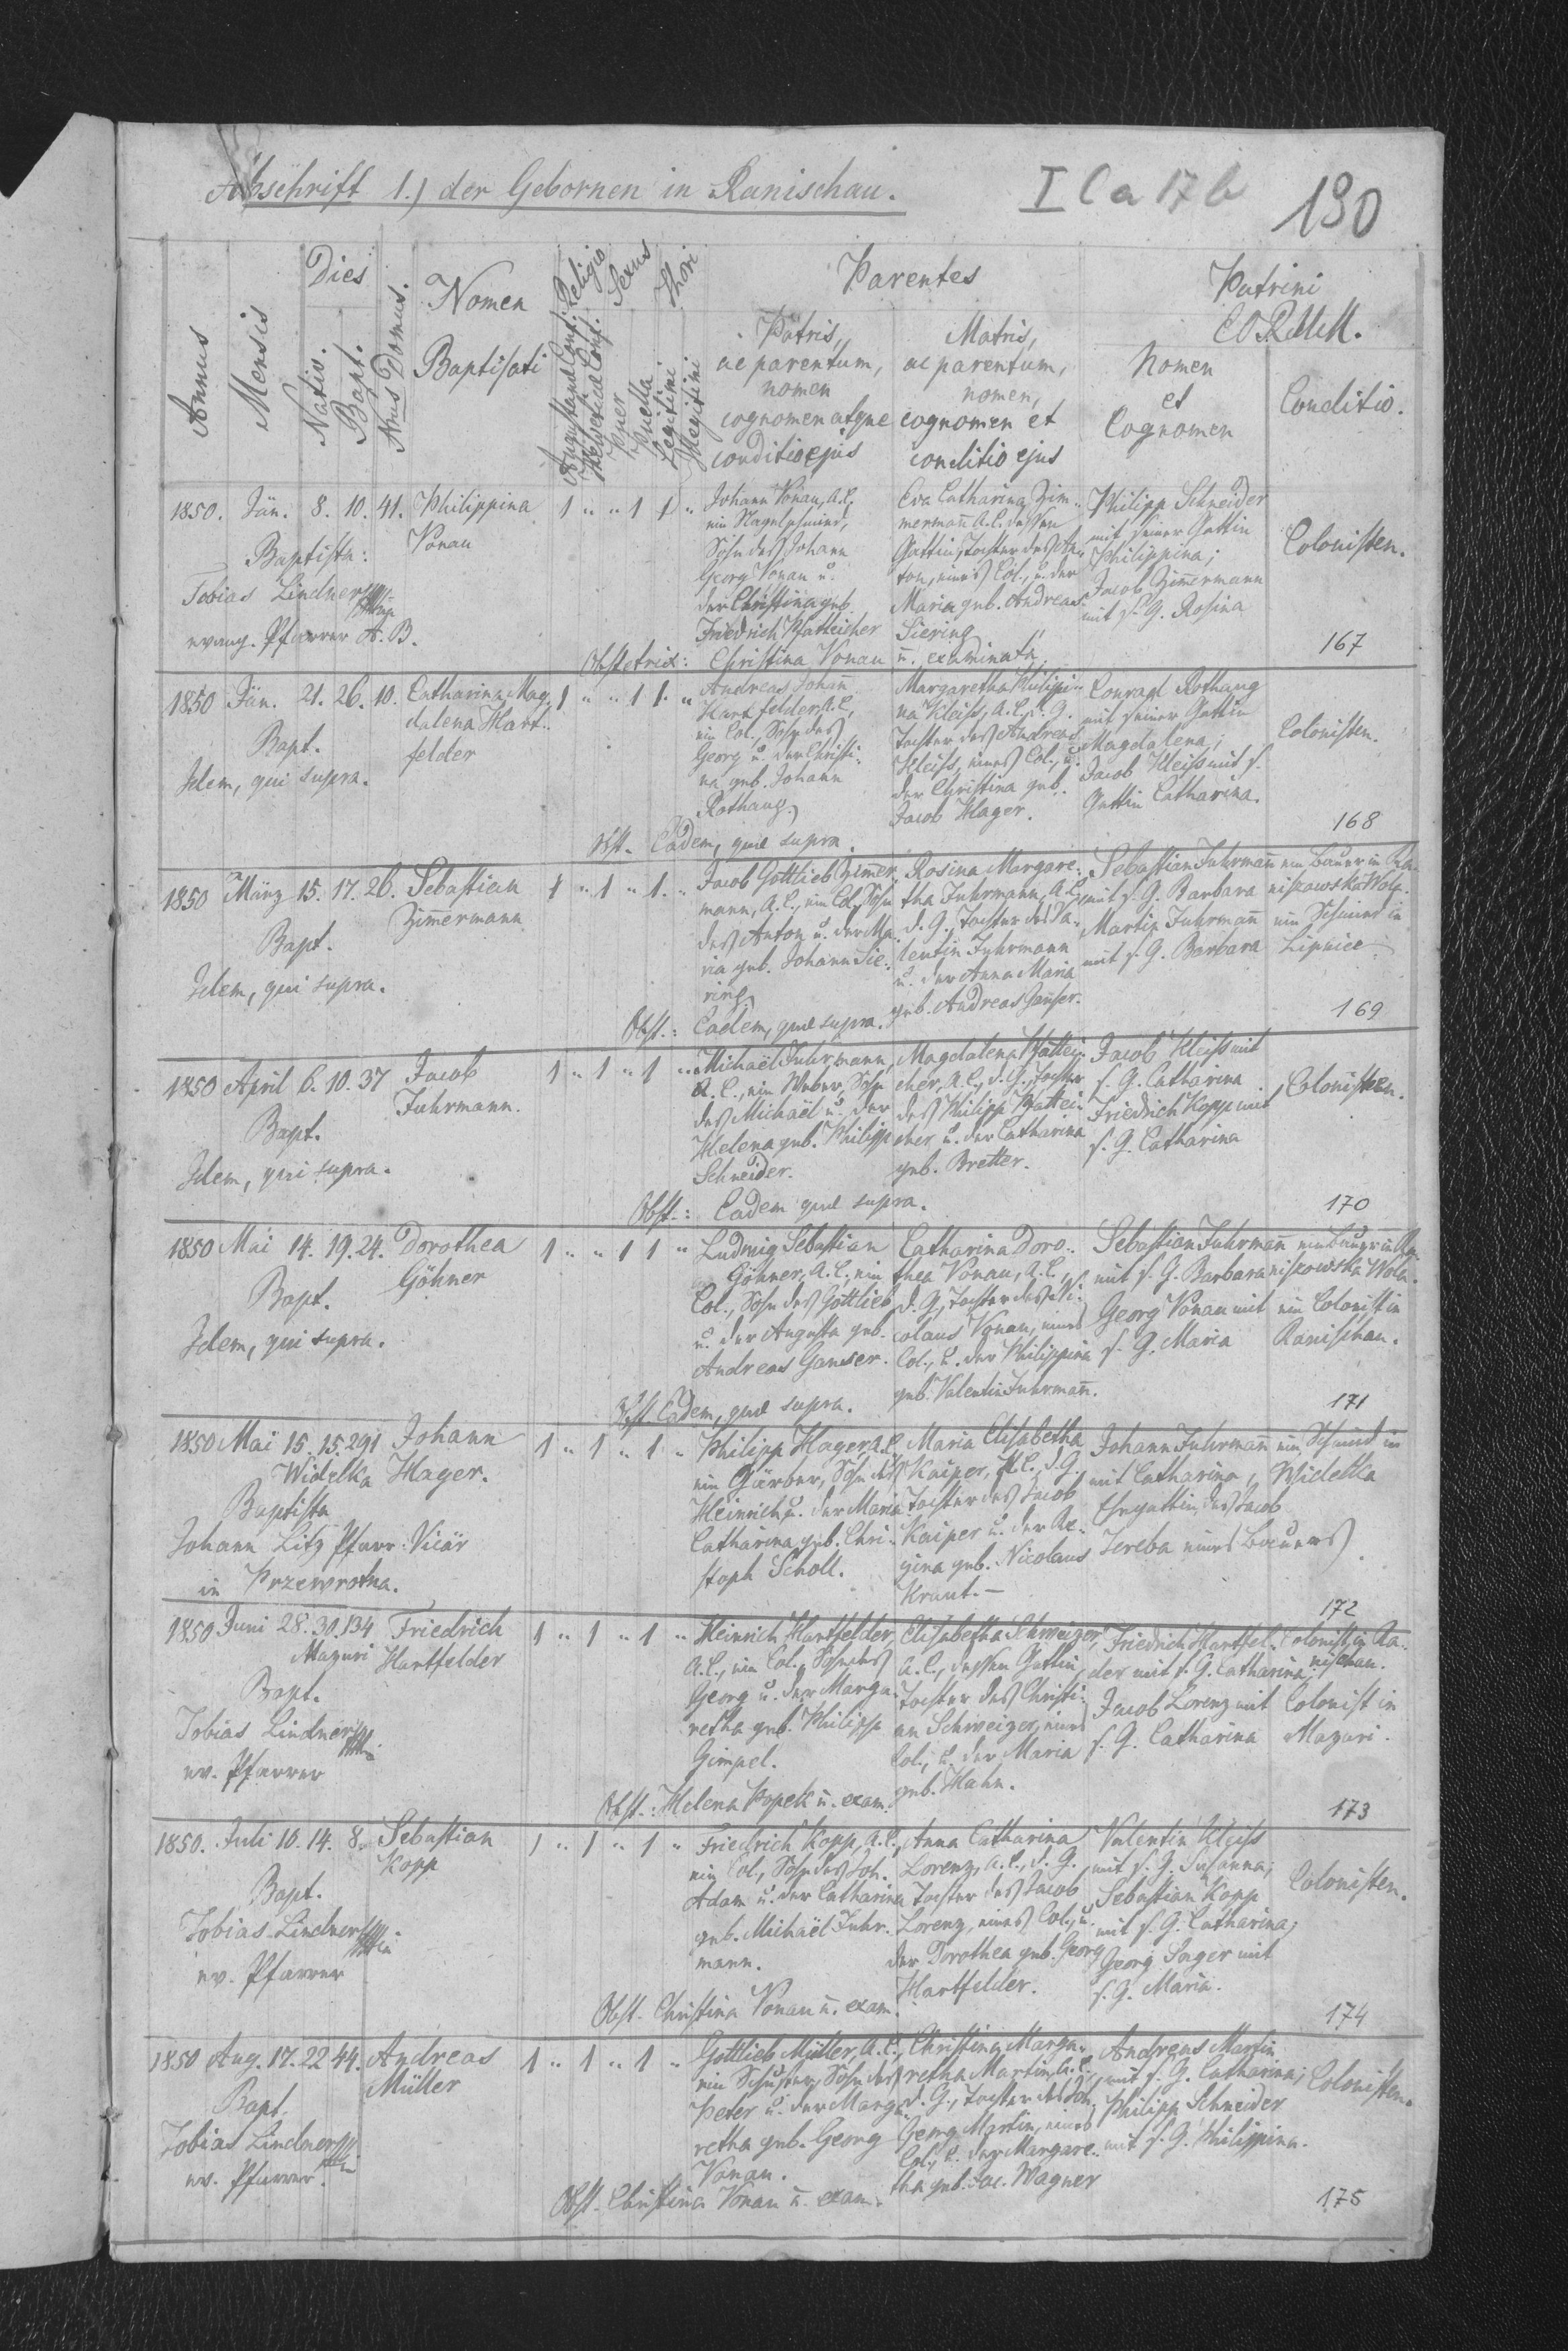 Abschrift 1.) der Gebornen in Ranischau.
I C a 17 b
190
Annus
Mensis
Dies
Nativ.
Bapt.
Nrus Domus.
Nomen
Baptisati
Religio
Augustanae Conf.
Helveticae Conf.
Sexus
Puer
Puella
Thori
Legitimi
Illegitimi
Parentes
Patris,
ac parentum,
nomen
cognomen atque
conditio ejus
Matris,
ac parentum,
nomen,
cognomen et
conditio ejus
Patrini
EORUM.
Nomen
et
Cognomen
Conditio.
1850. Jän. 8. 10. 41. Philippina
Vonau
1 " " 1 1 "
Baptista:
Tobias Lindner
evang. Pfarrer A. B.
Johann Vonau, A.C.
ein Nagelschmied,
Sohn des Johann
Georg Vonau u.
der Christina geb.
Friedrich Pfatteicher
Eva Catharina Zim-
mermann A.C. dessen
Gattin, Tochter des An-
ton, eines Col., u. der
Maria geb. Andreas
Siering
Philipp Schneider
mit seiner Gattin
Philippina;
Jacob Zimmermann
mit s. G. Rosina
Colonisten.
Obstetrix: Christina Vonau u. examinata
167
1850 Jän. 21. 26. 10. Catharina Mag-
dalena Hart-
felder
1 " " 1 1. "
Bapt.
Idem, qui supra.
Andreas Johann
Hartfelder A.C.,
ein Col., Sohn des
Georg u. der Christi-
na geb. Johann
Rothaug.
Margaretha Philippi-
na Kleiss, A.C. d. G.
Tochter des Andreas
Kleiss, eines Col., u.
der Christina geb.
Jacob Hager.
Conrad Rothaug
mit seiner Gattin
Magdalena;
Jacob Kleiss mit s.
Gattin Catharina.
Colonisten.
Obst. Eadem, quae supra.
168
1850 März 15. 17. 26. Sebastian
Zimmermann
1 " 1 " 1. "
Bapt.
Idem, qui supra.
Jacob Gottlieb Zimmer-
mann, A.C., ein Col., Sohn
des Anton u. der Ma-
ria geb. Johann Sie-
ring
Rosina Margare-
tha Fuhrmann, A.C.
d. G., Tochter des Va-
lentin Fuhrmann
u. der Anna Maria
geb. Andreas Ganser.
Sebastian Fuhrmann
mit s. G. Barbara
Martin Fuhrmann
mit s. G. Barbara
ein Bauer in Ra-
niszowska Wola.
ein Schmied in
Lipnice
Obst.: Eadem, quae supra.
169
1850 April 6. 10. 37 Jacob
Fuhrmann.
1 " 1 " 1 "
Bapt.
Idem, qui supra.
Michaël Fuhrmann,
A.C., ein Weber, Sohn
des Michaël u. der
Helena geb. Philipp
Schneider.
Magdalena Pfattei-
cher, A.C., d. G., Tochter
des Philipp Pfattei-
cher u. der Catharina
geb. Bretter.
Jacob Kleiss mit
s. G. Catharina
Friedrich Kopp mit
s. G. Catharina
Colonisten.
Obst.: Eadem quae supra.
170
1850 Mai 14. 19. 24. Dorothea
Göhner
1 " " 1 1 "
Bapt.
Idem, qui supra.
Ludwig Sebastian
Göhner, A.C., ein
Col., Sohn des Gottlieb
u. der Augusta geb.
Andreas Ganser.
Catharina Doro-
thea Vonau, A.C.,
d. G., Tochter des Ni-
colaus Vonau, eines
Col., u. der Philippina
geb. Valentin Fuhrmann.
Sebastian Fuhrmann
mit s. G. Barbara
Georg Vonau mit
s. G. Maria
ein Bauer in Ra-
niszowska Wola.
ein Colonist in
Ranischau.
Obst. Eadem, quae supra.
171
1850 Mai 15. 15. 291 Johann
Widelka Hager.
1 " 1 " 1 "
Baptista
Johann Litz Pfarr-Vicär
in Przewrotna.
Philipp Hager A.C.
ein Gärber, Sohn des
Heinrich u. der Maria
Catharina geb. Chri-
stoph Scholl.
Maria Elisabetha
Kaiper, A.C., d. G.
Tochter des Jacob
Kaiper u. der Re-
gina geb. Nicolaus
Kraut. —
Johann Fuhrmann
mit Catharina,
Ehegattin des Jacob
Jereba eines Bauers
ein Schmied in
Widelka
172
1850 Juni 28. 30. 134 Friedrich
Mazuri Hartfelder
1 " 1 " 1 "
Bapt.
Tobias Lindner
ev. Pfarrer
Heinrich Hartfelder,
A.C., ein Col., Sohn des
Georg u. der Marga-
retha geb. Philipp
Gimpel.
Elisabetha Schweizer,
A.C., dessen Gattin,
Tochter des Christi-
an Schweizer, eines
Col., u. der Maria
geb. Hahn.
Friedrich Hartfel-
der mit s. G. Catharina;
Jacob Lorenz mit
s. G. Catharina
Colonist in Ra-
nischau.
Colonist in
Mazuri.
Obst.: Helena Popek u. exam.
173
1850. Juli 10. 14. 8. Sebastian
Kopp
1 " 1 " 1 "
Bapt.
Tobias Lindner
ev. Pfarrer
Friedrich Kopp, A.C.,
ein Col., Sohn des Joh.
Adam u. der Catharina
geb. Michaël Fuhr-
mann.
Anna Catharina
Lorenz, A.C., d. G.
Tochter des Jacob
Lorenz, eines Col., u.
der Dorothea geb. Georg
Hartfelder.
Valentin Kleiss
mit s. G. Susanna;
Sebastian Kopp
mit s. G. Catharina;
Georg Inger mit
s. G. Maria.
Colonisten.
Obst. Christina Vonau u. exam.
174
1850 Aug. 17. 22 44. Andreas
Müller
1 " 1 " 1 "
Bapt.
Tobias Lindner
ev. Pfarrer.
Gottlieb Müller, A.C.,
ein Schuster, Sohn des
Peter u. der Marga-
retha geb. Georg
Vonau.
Christina Marga-
retha Martin, A.C.,
d. G., Tochter des Joh.
Georg Martin, eines
Col., u. der Margare-
tha geb. Jac. Wagner
Andreas Martin
mit s. G. Catharina;
Philipp Schneider
mit s. G. Philippina.
Colonisten.
Obst. Christina Vonau u. exam.
175